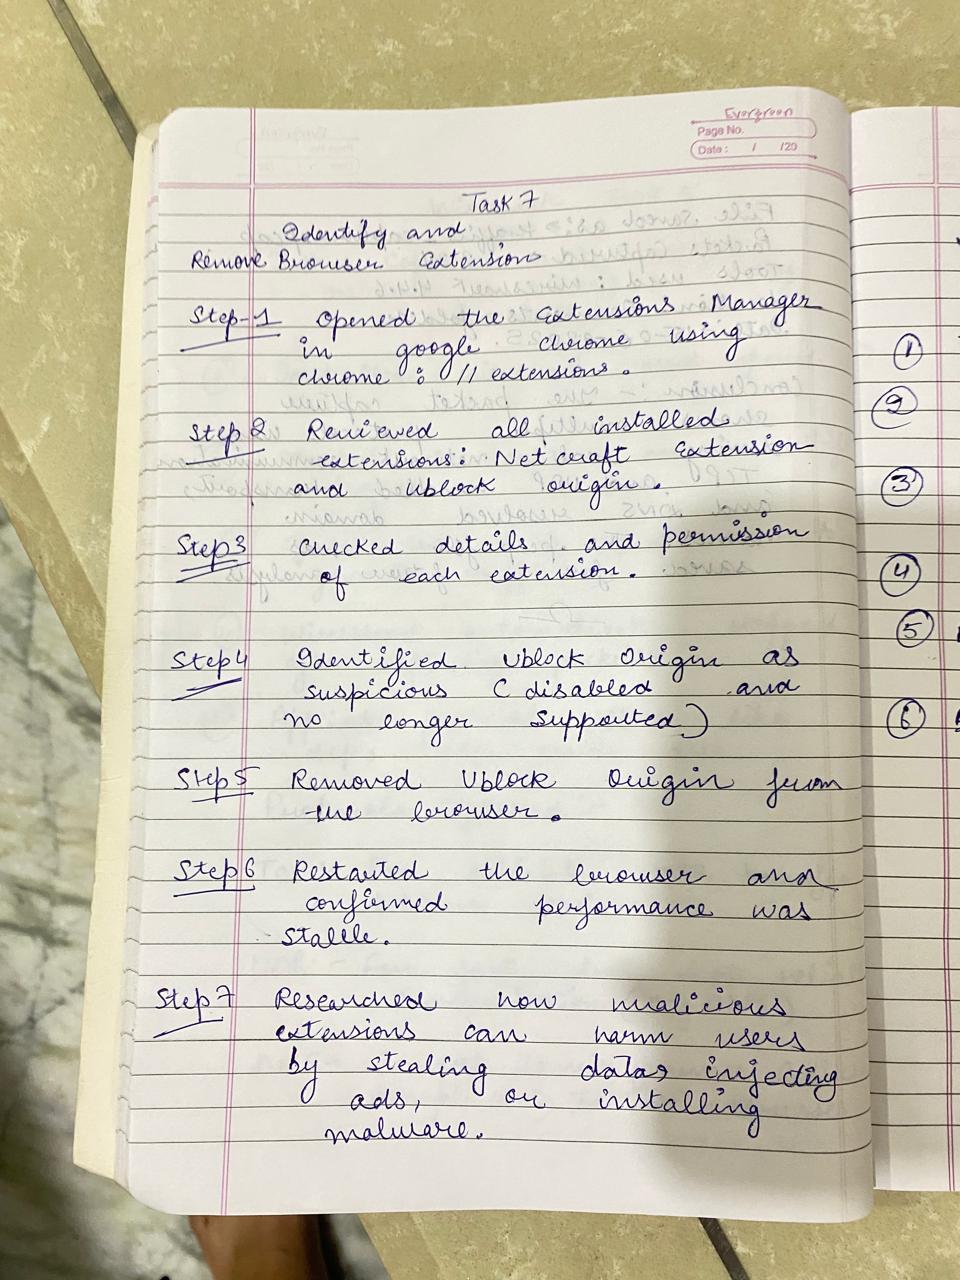 Evergreen
Page No.
Date : / /20
Task 7
Identify and
Remove Browser Extension
Step-1 opened the Extensions Manager
in google chrome using
chrome : // extensions .
Step 2 Reviewed all installed
extensions : Netcraft Extension
and Ublock Origin .
Step3 checked details and permission
of each extension .
Step4 Identified Ublock Origin as
suspicious ( disabled and
no longer supported )
Step5 Removed Ublock Origin from
the browser .
Step6 Restarted the browser and
confirmed performance was
stable .
Step7 Researched how malicious
extensions can harm users
by stealing data, injecting
ads, or installing
malware .
1
2
3
4
5
6